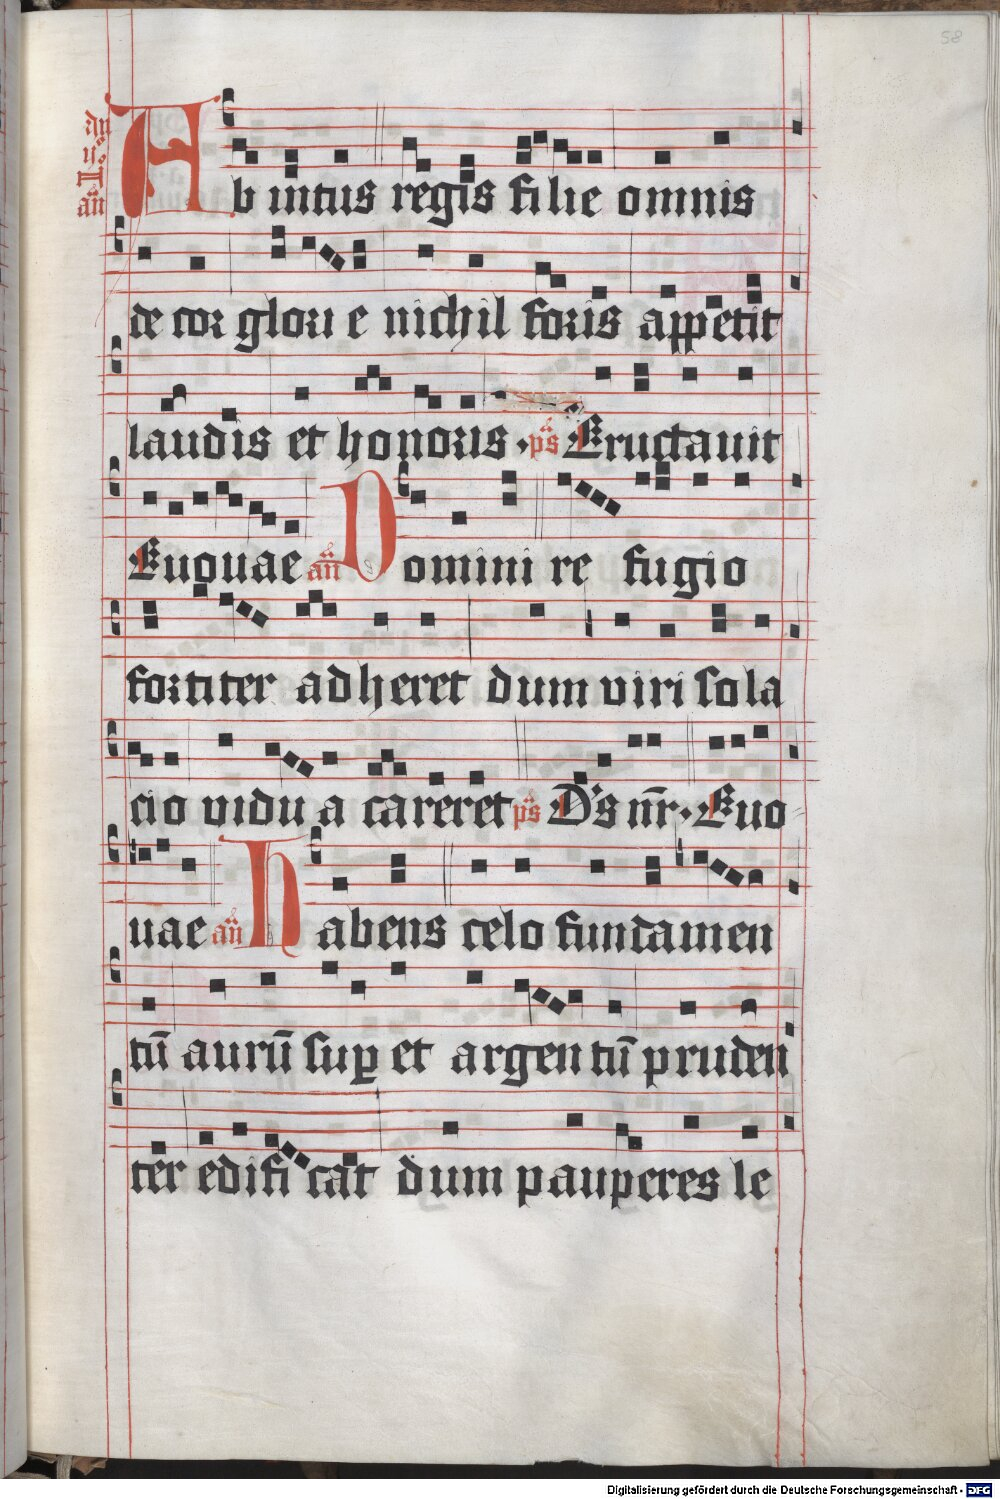 58
Ab intus regis filie omnis
decor glorie nichil foris appetit
laudis et honoris · p̄s Eructauit
Euouae an̄ Domini re fugio
fortiter adheret dum viri sola
cio vidua careret p̄s D's nr̄ · Euo
uae an̄ Habens celo fundamen
tū aurū suꝑ et argentū pruden
ter edificat dum pauperes le
Digitalisierung gefördert durch die Deutsche Forschungsgemeinschaft - DFG